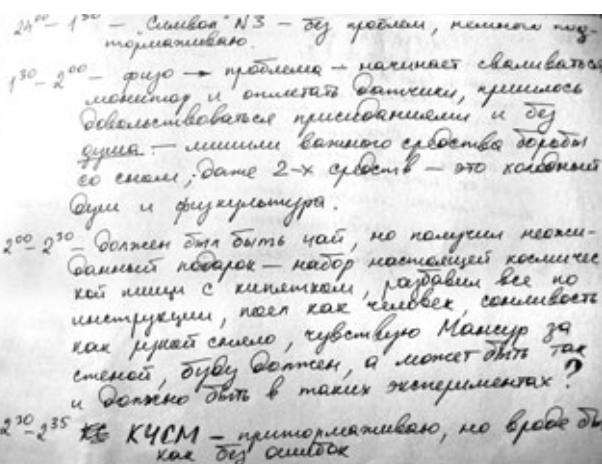 24⁰⁰ – 1³⁰ – "Символ" N3 – без проблем, немного под-
тормаживаю.
1³⁰ – 2⁰⁰ – физо → проблема – начинает сваливаться
монитор и отлетать датчики, пришлось
довольствоваться приседаниями и без
душа – лишили важного средства борьбы
со сном, даже 2-х средств – это холодный
душ и физкультура.
2⁰⁰ – 2³⁰ – должен был быть чай, но получил неожи-
данный подарок – набор настоящей космичес
кой пищи с кипятком, разбавил все по
инструкции, поел как человек, сонливость
как рукой сняло, чувствую Мансур за
стеной, буду должен, а может быть так
и должно быть в таких экспериментах?
2³⁰ – 2³⁵ КЧСМ – притормаживаю, но вроде бы
как без ошибок